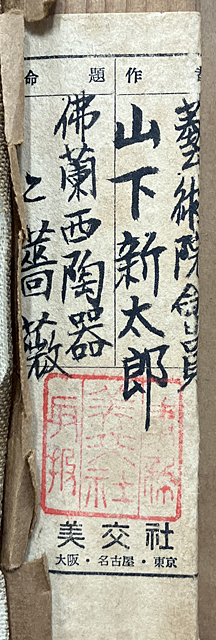 命 題 作
藝術院會員
山下新太郎
佛蘭西陶器
と薔薇
美交社
大阪・名古屋・東京